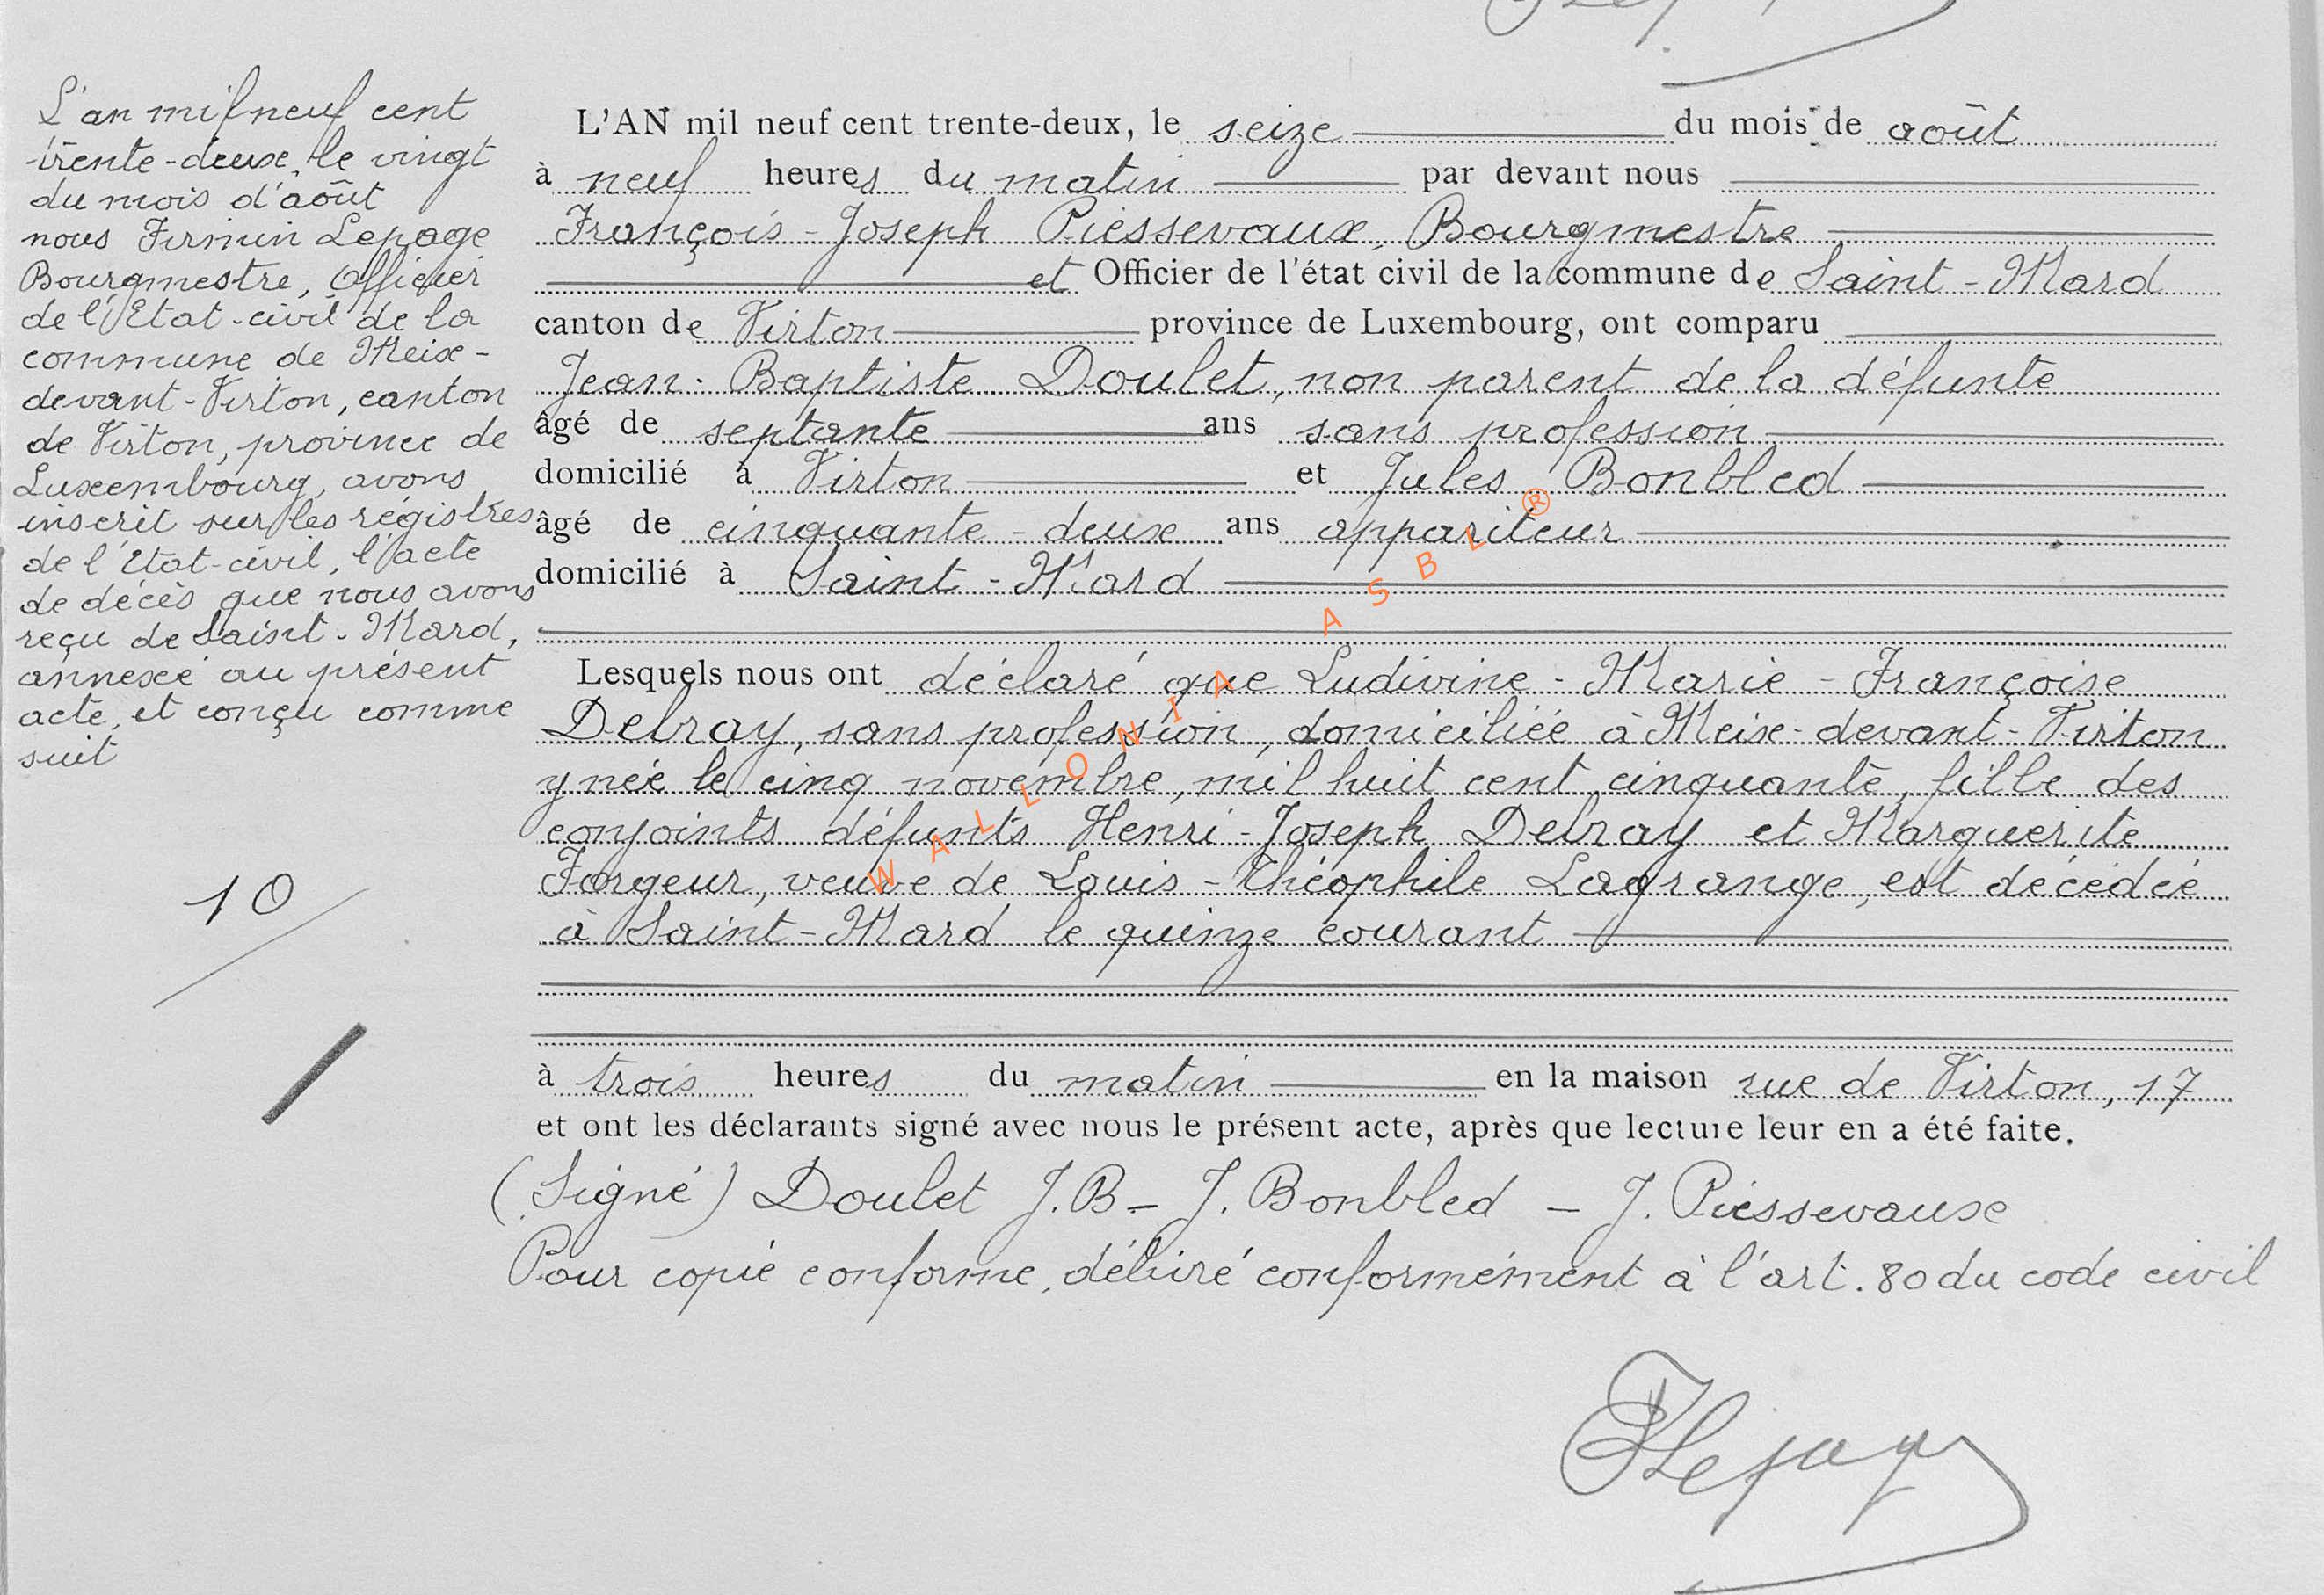 L'an mil neuf cent
trente-deux, le vingt
du mois d'août
nous Firmin Lepage
Bourgmestre, Officier
de l'Etat-civil de la
commune de Meix-
devant-Virton, canton
de Virton, province de
Luxembourg, avons
inscrit sur les régistres
de l'Etat-civil, l'acte
de décès que nous avons
reçu de Saint-Mard,
annexé au présent
acte, et conçu comme
suit
10
L'AN mil neuf cent trente-deux, le seize du mois de août
à neuf heures du matin par devant nous
François-Joseph Piessevaux, Bourgmestre
et Officier de l'état civil de la commune de Saint-Mard
canton de Virton province de Luxembourg, ont comparu
Jean-Baptiste Doulet, non parent de la défunte
âgé de septante ans sans profession
domicilié à Virton et Jules Bonbled
âgé de cinquante-deux ans appariteur
domicilié à Saint-Mard
Lesquels nous ont déclaré que Ludivine-Marie-Françoise
Delray, sans profession, domiciliée à Meix-devant-Virton
y née le cinq novembre, mil huit cent cinquante, fille des
conjoints défunts Henri-Joseph Delray et Marguerite
Forgeur, veuve de Louis-Théophile Lagrange, est décédée
à Saint-Mard le quinze courant
à trois heures du matin en la maison rue de Virton, 17
et ont les déclarants signé avec nous le présent acte, après que lecture leur en a été faite.
(Signé) Doulet J.B - J. Bonbled - J. Piessevaux
Pour copie conforme, délivré conformément à l'art. 80 du code civil
FLepage
WALLONIA ASBL ®